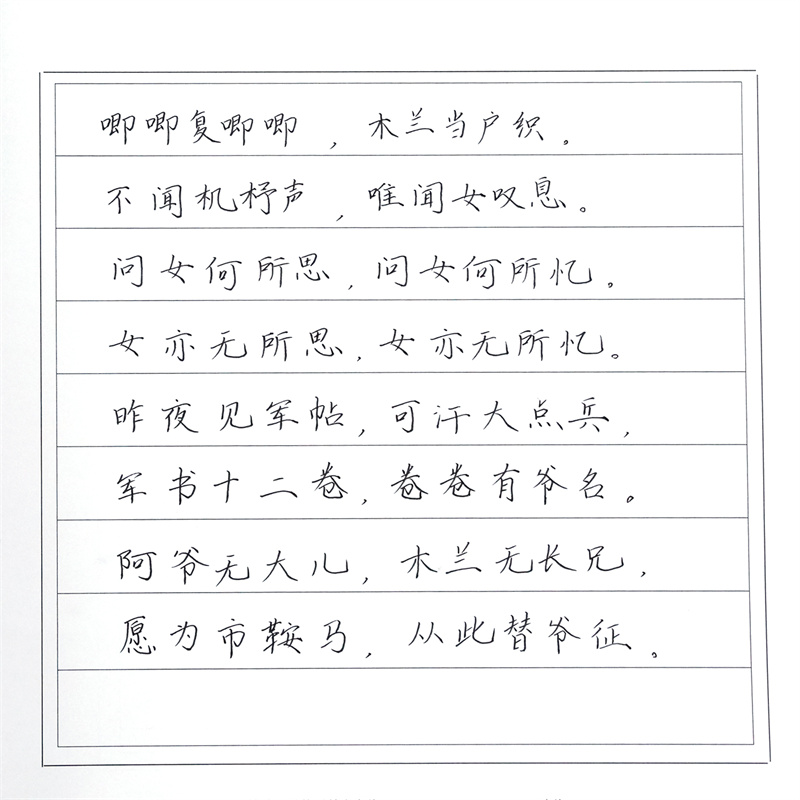 唧唧复唧唧，木兰当户织。
不闻机杼声，唯闻女叹息。
问女何所思，问女何所忆。
女亦无所思，女亦无所忆。
昨夜见军帖，可汗大点兵，
军书十二卷，卷卷有爷名。
阿爷无大儿，木兰无长兄，
愿为市鞍马，从此替爷征。